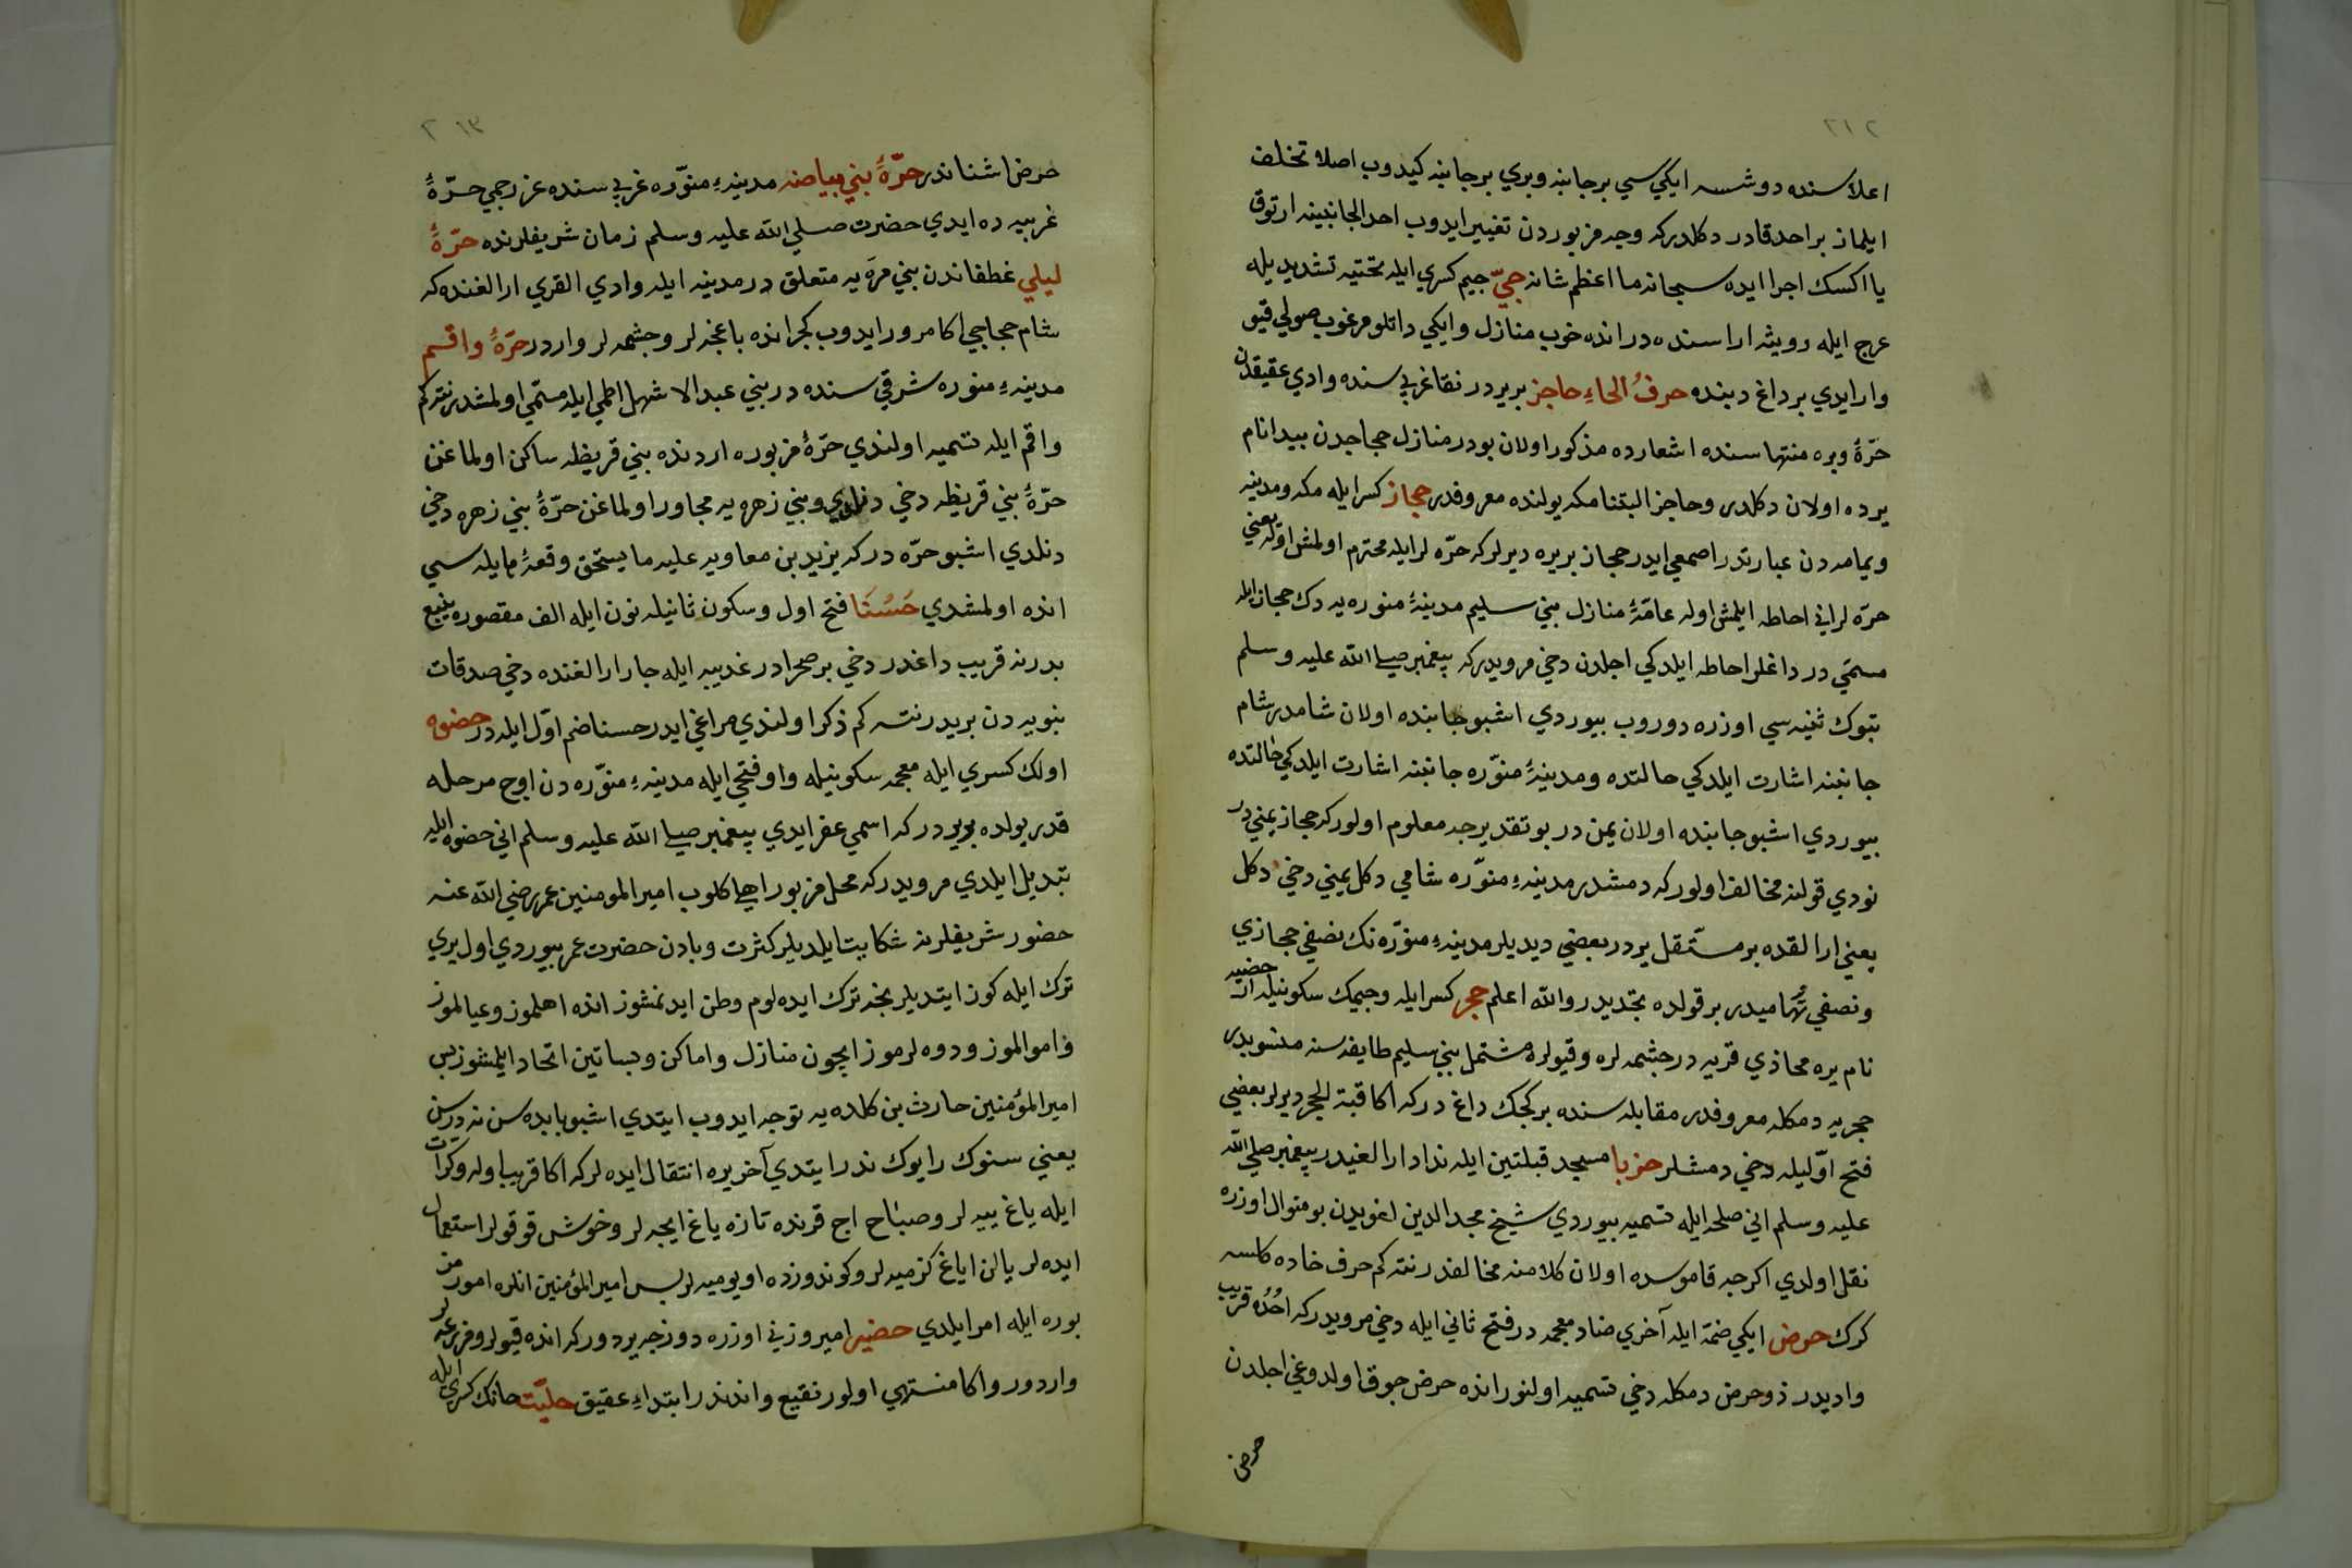 ٢١٢
اعلاسنده دوشسه ايكيسي برجانبه وبري برجانبه كيدوب اصلا تخلف
ايلماز براحد قادر دكلدركه وجه مزبوردن تغيير ايدوب احد الجانبينه ارتوق
يا اكسك اجرا ايده سبحانه ما اعظم شانه جيّ جيم كسري ايله تحتيه تشديديله
عرج ايله رويثه اراسنده در انده خوب منازل وايكي داتلو مرغوب صولي قيو
وار ايدي برداغ دبنده حرفُ الحاءِ حاجز بريردر نقا غربيسنده وادي عقيقدن
حرّهٔ وبره منتهاسنده اشعارده مذكور اولان بودر منازل حجاجدن بيدا نام
يرده اولان دكلدر وحاجز البتنا مكه يولنده معروفدر حجاز كسرايله مكه ومدينه
ويمامه دن عبارتدر اصمعي ايدر حجاز بريره ديرلركه حرّه لرايله محترم اولمش اوله يعني
حرّه لر اني احاطه ايلمش اوله عامّهٔ منازل بني سليم مدينهٔ منوره يه دك حجاز ايله
مسمّي در داغلر احاطه ايلدكي اجلدن دخي مرويدركه پيغمبر صلي الله عليه وسلم
تبوك ثنيه سي اوزره دوروب بيوردي اشبو جانبده اولان شامدر شام
جانبنه اشارت ايلدكي حالتده ومدينهٔ منوّره جانبنه اشارت ايلدكي حالتده
بيوردي اشبو جانبده اولان يمن در بو تقديرجه معلوم اولوركه حجاز يمني در
نودي قولنه مخالف اولوركه دمشدر مدينهءِ منوّره شامي دكل يمني دخي دكل
يعني ارالقده بر مستقل يردر بعضي ديديلر مدينهءِ منوّره نك نصفي حجازي
ونصفي تهاميدر بر قولده نجديدر والله اعلم حجر كسرايله وجيمك سكونيله ات حضيه
نام يره محاذي قريه در چشمه لره وقيولره مشتمل بني سليم طايفه سنه منسوبدر
حجريه دمكله معروفدر مقابله سنده بركجك داغ دركه اكا قبة الحجر ديرلر بعضي
فتح اوّليله دخي دمشلر حزبا مسجد قبلتين ايله نداد ارالغيدر پيغمبر صلي الله
عليه وسلم اني صلحه ايله تسميه بيوردي شيخ مجد الدين لغويدن بو منوال اوزره
نقل اولدي اكرچه قاموسده اولان كلامنه مخالفدر نته كم حرف خاده كلسه
كرك حرض ايكي ضمّه ايله آخري ضاد معجمه در فتح ثاني ايله دخي مرويدركه اُحُده قريب
واديدر ذوحرض دمكله دخي تسميه اولنور انده حرض چوق اولدوغي اجلدن
حرض
٢١٣
حرض اشناندر حرّهٔ بني بياضه مدينهءِ منوّره غربيسنده عز رجمي حرّهٔ
غربيه ده ايدي حضرت صلي الله عليه وسلم زمان شريفلرنده حرّهٔ
ليلي غطفاندن بني مرّه يه متعلق در مدينه ايله وادي القري ارالغنده كه
شام حجاجي اكا مرور ايدوب كجر انده باغچه لر وچشمه لر واردر حرّهٔ واقم
مدينهءِ منوره شرقيسنده در بني عبد الاشهل اطمي ايله مسمّي اولمشدر نته كم
واقم ايله تسميه اولندي حرّهٔ مزبوره اردنده بني قريظه ساكن اولماغن
حرّهٔ بني قريظه دخي دنلدي وبني زهره يه مجاور اولماغن حرّهٔ بني زهره دخي
دنلدي اشبو حرّه دركه يزيد بن معاويه عليه ما يستحق وقعهٔ هايله سي
انده اولمشدي حَسْنَا فتح اول وسكون ثانيله نون ايله الف مقصوره ينبع
بدرنه قريب داغدر دخي بر صحرادر غديبه ايله جار ارالغنده دخي صدقات
نبويه دن بريدر نته كم ذكر اولندي مراغي ايدر حسنا ضم اوّل ايله در حضوه
اولك كسري ايله معجمه سكونيله واو فتحي ايله مدينهءِ منوّره دن اوچ مرحله
قدر يولده بريردركه اسمي عفر ايدي پيغمبر صلي الله عليه وسلم اني حضوه ايله
تبديل ايلدي مرويدركه محل مزبور اهلي كلوب امير المومنين عمر رضي الله عنه
حضور شريفلرنه شكايت ايلديلر كثرت وبادن حضرت عمر بيوردي اول يري
ترك ايله كوز ايتديلر نجه ترك ايده لوم وطن ايدنمشوز انده اهلموز وعيالموز
واموالموز ودوه لرموز ايچون منازل واماكن وبساتين اتخاد ايلمشوز پس
امير المؤمنين حارث بن كلده يه توجه ايدوب ايتدي اشبو بابده سن نه درسن
يعني سنوك رايوك ندر ايتدي آخر يره انتقال ايده لركه اكا قريب اوله وكرات
ايله ياغ ييه لر وصباح اچ قرنده تازه ياغ ايچه لر وخوش قوقولر استعمال
ايده لر يالن اياغ كزميه لر وكوندوزده اويوميه لر پس امير المؤمنين انلره امور مز
بوره ايله امر ايلدي حضير اميروزني اوزره دوزجه يردوركه انده قيولر ومزرعه لر
واردور واكا منتهي اولور نقيع واندندر ابتداءِ عقيق حليّت حانك كسري ايله